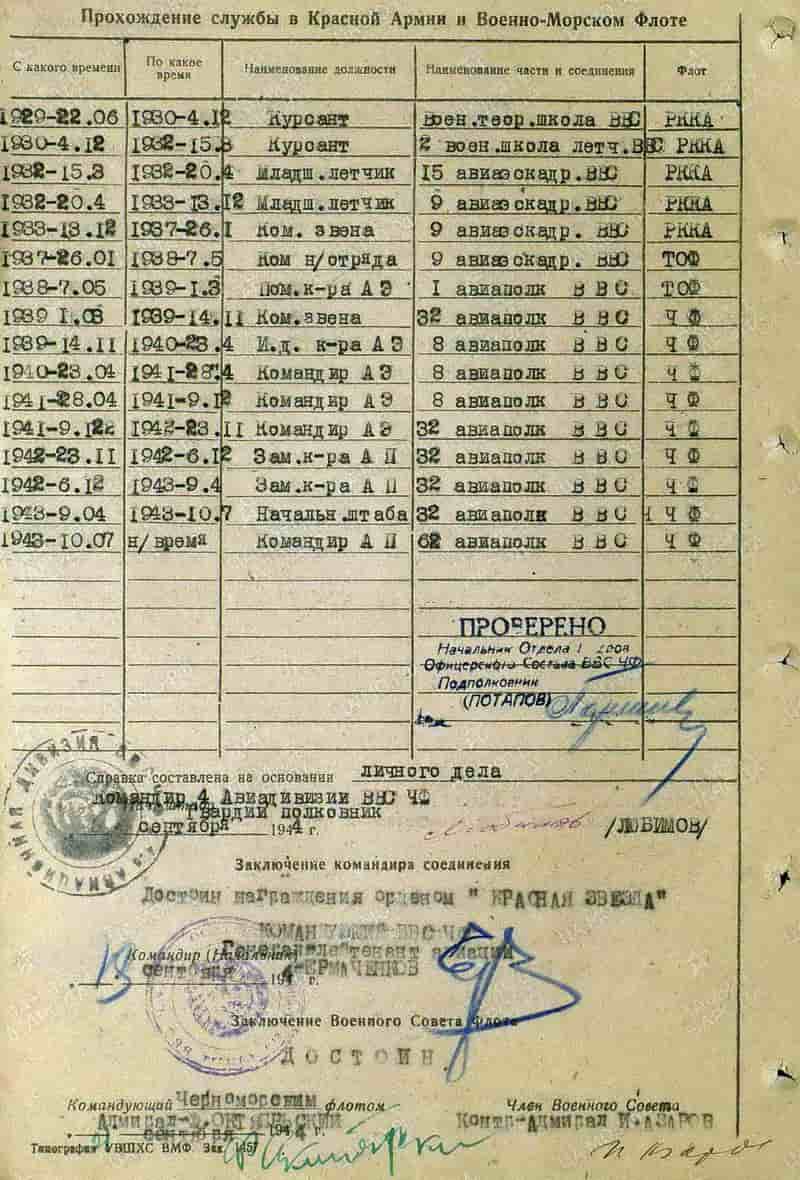 Прохождение службы в Красной Армии и Военно-Морском Флоте
С какого времени По какое время Наименование должности Наименование части и соединения Флот
1929-22.06 1930-4.12 Курсант воен.теор.школа ВВС РККА
1930-4.12 1932-15.3 Курсант 2 воен.школа летч.ВВС РККА
1932-15.3 1932-20.4 Младш.летчик 15 авиаэскадр.ВВС РККА
1932-20.4 1933-13.12 Младш.летчик 9 авиаэскадр.ВВС РККА
1933-13.12 1937-26.1 Ком. звена 9 авиаэскадр. ВВС РККА
1937-26.01 1938-7.5 Ком н/отряда 9 авиаэскадр. ВВС ТОФ
1938-7.05 1939-1.3 Пом.к-ра АЭ 1 авиаполк ВВС ТОФ
1939 1.03 1939-14.11 Ком.звена 32 авиаполк ВВС ЧФ
1939-14.11 1940-23.4 И.д. к-ра АЭ 8 авиаполк ВВС ЧФ
1940-23.04 1941-28.4 Командир АЭ 8 авиаполк ВВС ЧФ
1941-28.04 1941-9.12 Командир АЭ 8 авиаполк ВВС ЧФ
1941-9.12 1942-23.11 Командир АЭ 32 авиаполк ВВС ЧФ
1942-23.11 1942-6.12 Зам.к-ра АП 32 авиаполк ВВС ЧФ
1942-6.12 1943-9.4 Зам.к-ра АП 32 авиаполк ВВС ЧФ
1943-9.04 1943-10.7 Начальн.штаба 32 авиаполк ВВС ЧФ
1943-10.07 н/время Командир АП 62 авиаполк ВВС ЧФ
ПРОВЕРЕНО
Начальник Отдела 1
Офицерского Состава ВВС ЧФ
Подполковник
(ПОТАПОВ)
Справка составлена на основании личного дела
Командир 4 Авиадивизии ВВС ЧФ
Гвардии полковник
сентября 1944 г. /ЛЮБИМОВ/
Заключение командира соединения
Достоин награждения орденом "КРАСНАЯ ЗВЕЗДА"
Командир (Начальник)
Генерал-лейтенант авиации
13 сентября 1944 г. ЕРМАЧЕНКОВ
Заключение Военного Совета флота
ДОСТОИН
Командующий Черноморским флотом Член Военного Совета
Адмирал ОКТЯБРЬСКИЙ Контр-Адмирал И.АЗАРОВ
сентября 1944 г.
Типография УВШХС ВМФ. Зак. 1457